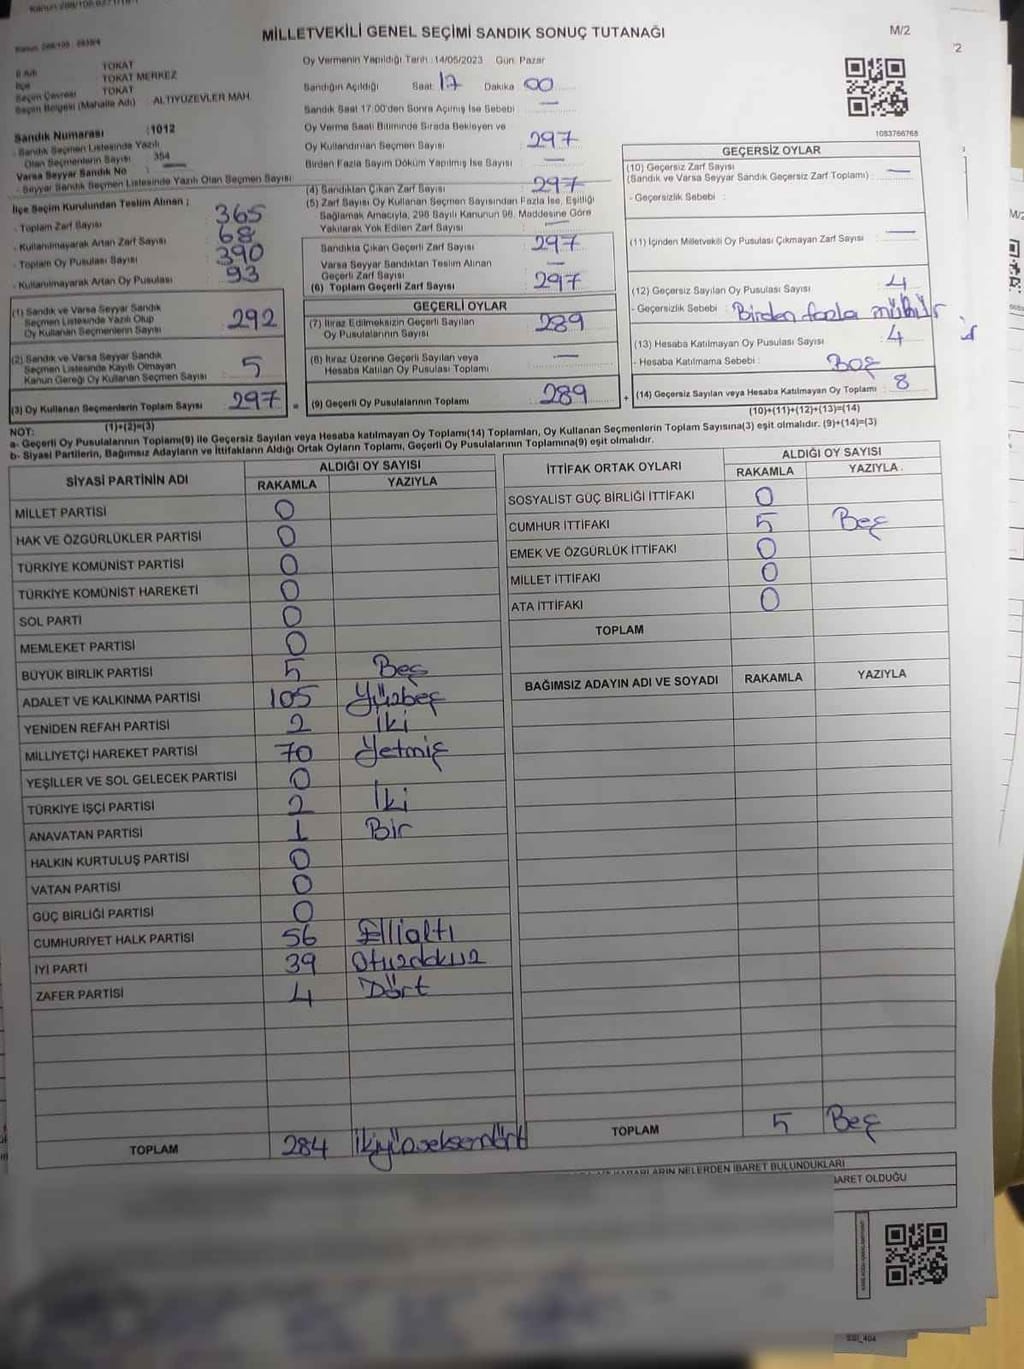 MİLLETVEKİLİ GENEL SEÇİMİ SANDIK SONUÇ TUTANAĞI
M/2
İli Adı TOKAT
İlçe TOKAT MERKEZ
Seçim Çevresi TOKAT
Seçim Bölgesi (Mahalle Adı) ALTIYÜZEVLER MAH.
Sandık Numarası : 1012
- Sandık Seçmen Listesinde Yazılı
Olan Seçmenlerin Sayısı : 354
Varsa Seyyar Sandık No : —
- Seyyar Sandık Seçmen Listesinde Yazılı Olan Seçmen Sayısı
Oy Vermenin Yapıldığı Tarih :14/05/2023 Gün: Pazar
Sandığın Açıldığı Saat: 17 Dakika 00
Sandık Saat 17:00'den Sonra Açılmış İse Sebebi : —
Oy Verme Saati Bitiminde Sırada Bekleyen ve
Oy Kullandırılan Seçmen Sayısı : 297
Birden Fazla Sayım Döküm Yapılmış İse Sayısı : —
1083766768
İlçe Seçim Kurulundan Teslim Alınan ;
- Toplam Zarf Sayısı : 365
- Kullanılmayarak Artan Zarf Sayısı : 68
- Toplam Oy Pusulası Sayısı : 390
- Kullanılmayarak Artan Oy Pusulası : 93
(1) Sandık ve Varsa Seyyar Sandık
Seçmen Listesinde Yazılı Olup
Oy Kullanan Seçmenlerin Sayısı : 292
(2) Sandık ve Varsa Seyyar Sandık
Seçmen Listesinde Kayıtlı Olmayan
Kanun Gereği Oy Kullanan Seçmen Sayısı : 5
(3) Oy Kullanan Seçmenlerin Toplam Sayısı : 297
(1)+(2)=(3)
(4) Sandıktan Çıkan Zarf Sayısı : 297
(5) Zarf Sayısı Oy Kullanan Seçmen Sayısından Fazla İse, Eşitliği
Sağlamak Amacıyla, 298 Sayılı Kanunun 98. Maddesine Göre
Yakılarak Yok Edilen Zarf Sayısı : —
Sandıkta Çıkan Geçerli Zarf Sayısı : 297
Varsa Seyyar Sandıktan Teslim Alınan
Geçerli Zarf Sayısı : —
(6) Toplam Geçerli Zarf Sayısı : 297
GEÇERLİ OYLAR
(7) İtiraz Edilmeksizin Geçerli Sayılan
Oy Pusulalarının Sayısı : 289
(8) İtiraz Üzerine Geçerli Sayılan veya
Hesaba Katılan Oy Pusulası Toplamı : —
= (9) Geçerli Oy Pusulalarının Toplamı : 289
GEÇERSİZ OYLAR
(10) Geçersiz Zarf Sayısı
(Sandık ve Varsa Seyyar Sandık Geçersiz Zarf Toplamı) : —
- Geçersizlik Sebebi :
(11) İçinden Milletvekili Oy Pusulası Çıkmayan Zarf Sayısı : —
(12) Geçersiz Sayılan Oy Pusulası Sayısı : 4
- Geçersizlik Sebebi : Birden fazla mühür
(13) Hesaba Katılmayan Oy Pusulası Sayısı : 4
- Hesaba Katılmama Sebebi : Boş
+ (14) Geçersiz Sayılan veya Hesaba Katılmayan Oy Toplamı : 8
(10)+(11)+(12)+(13)=(14)
NOT:
a- Geçerli Oy Pusulalarının Toplamı(9) ile Geçersiz Sayılan veya Hesaba katılmayan Oy Toplamı(14) Toplamları, Oy Kullanan Seçmenlerin Toplam Sayısına(3) eşit olmalıdır. (9)+(14)=(3)
b- Siyasi Partilerin, Bağımsız Adayların ve İttifakların Aldığı Ortak Oyların Toplamı, Geçerli Oy Pusulalarının Toplamına(9) eşit olmalıdır.
SİYASİ PARTİNİN ADI ALDIĞI OY SAYISI
RAKAMLA YAZIYLA
MİLLET PARTİSİ 0
HAK VE ÖZGÜRLÜKLER PARTİSİ 0
TÜRKİYE KOMÜNİST PARTİSİ 0
TÜRKİYE KOMÜNİST HAREKETİ 0
SOL PARTİ 0
MEMLEKET PARTİSİ 0
BÜYÜK BİRLİK PARTİSİ 5 Beş
ADALET VE KALKINMA PARTİSİ 105 Yüzbeş
YENİDEN REFAH PARTİSİ 2 İki
MİLLİYETÇİ HAREKET PARTİSİ 70 Yetmiş
YEŞİLLER VE SOL GELECEK PARTİSİ 0
TÜRKİYE İŞÇİ PARTİSİ 2 İki
ANAVATAN PARTİSİ 1 Bir
HALKIN KURTULUŞ PARTİSİ 0
VATAN PARTİSİ 0
GÜÇ BİRLİĞİ PARTİSİ 0
CUMHURİYET HALK PARTİSİ 56 Ellialtı
İYİ PARTİ 39 Otuzdokuz
ZAFER PARTİSİ 4 Dört
TOPLAM 284 İkiyüzseksendört
İTTİFAK ORTAK OYLARI ALDIĞI OY SAYISI
RAKAMLA YAZIYLA
SOSYALİST GÜÇ BİRLİĞİ İTTİFAKI 0
CUMHUR İTTİFAKI 5 Beş
EMEK VE ÖZGÜRLÜK İTTİFAKI 0
MİLLET İTTİFAKI 0
ATA İTTİFAKI 0
TOPLAM
BAĞIMSIZ ADAYIN ADI VE SOYADI RAKAMLA YAZIYLA
TOPLAM 5 Beş
NELERDEN İBARET BULUNDUKLARI
BARET OLDUĞU